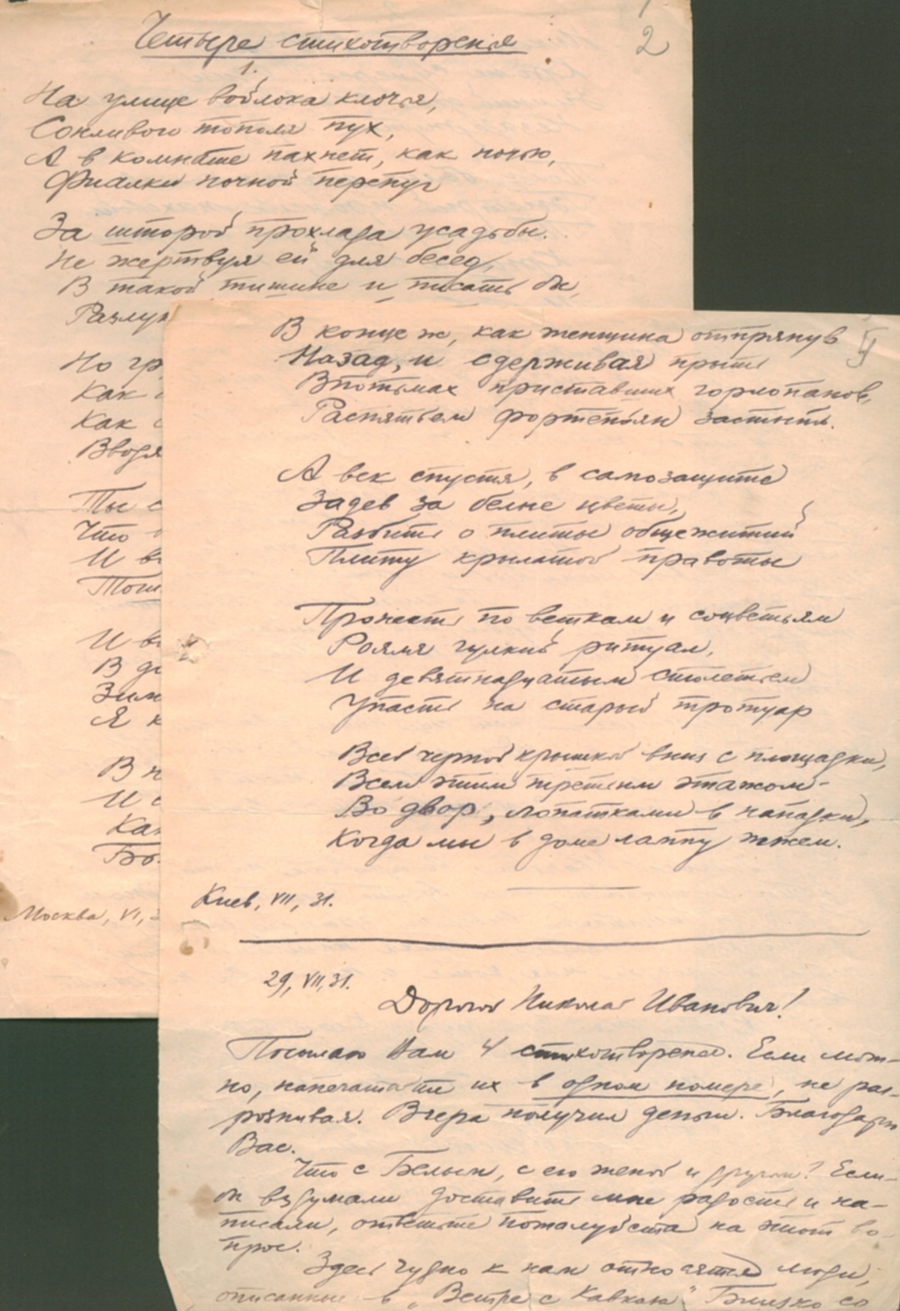 2
Четыре стихотворенья
1.
На улице войлока клочья,
Сонливого тополя пух,
А в комнате пахнет, как ночью
Фиалки ночной перепуг
За шторой прохлада усадьбы.
Не жертвуя ей для бесед,
В такой тишине и писать бы,
Разлу
Но гр
Как
Как
Вводя
Ты с
Что
И в
Тош
И во
В д
Зим
Я к
В н
И с
Как
Бы
Москва, VI, 3
В конце ж, как женщина отпрянув
Назад, и сдерживая прыть
Впотьмах приставших горлопанов,
Распятьем фортепьян застыть.
А век спустя, в самозащите
Задев за белые цветы,
Разбить о плиты общежитий
Плиту крылатой правоты
Прожечь по веткам и соцветьям
Рояля гулкий ритуал,
И девятнадцатым столетьем
Упасть на старый тротуар
Всей черной крышкой вниз с площадки,
Всем этим третьим этажом-
Во двор, лопатками в нападки,
Когда мы в доме лампу жжем.
Киев, VII, 31.
29, VII, 31.
Дорогой Николай Иванович!
Посылаю Вам 4 стихотворенья. Если мож-
но, напечатайте их в одном номере, не раз-
рознивая. Вчера получил деньги. Благодарю
Вас.
Что с Белым, с его женой и другом? Если-
бы вздумали доставить мне радость и на-
писали, ответьте пожалуйста на этот во-
прос.
Здесь чудно к нам относятся люди,
описанные в „Встрече с Кавказом" Близко со